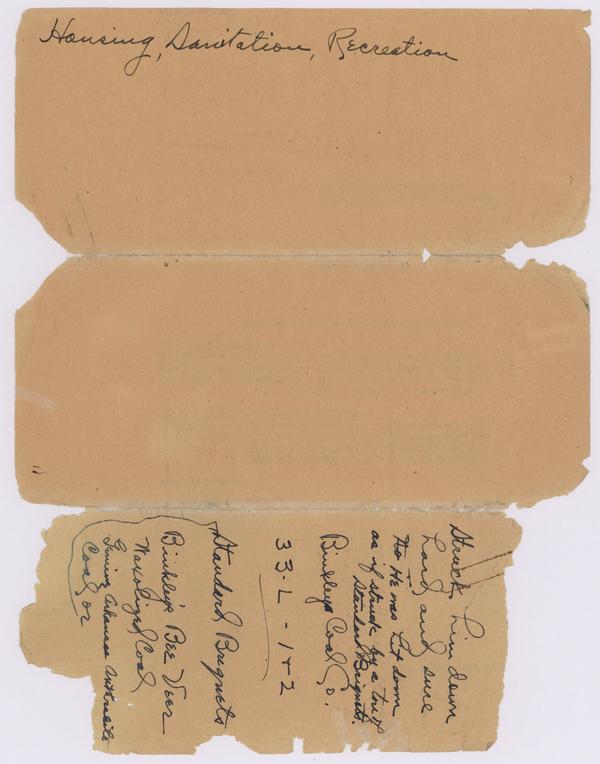 Housing, Sanitation, Recreation
Struck him down
hard and sure
He was Let down
as if struck by a ton of
Standard Briquets.
Binkley Coal Co.
33-L-1+2
Standard Briquets
Binkley's Bee Veer
Waxolized Coal
Genuine Arkansas Anthracite
Coal or